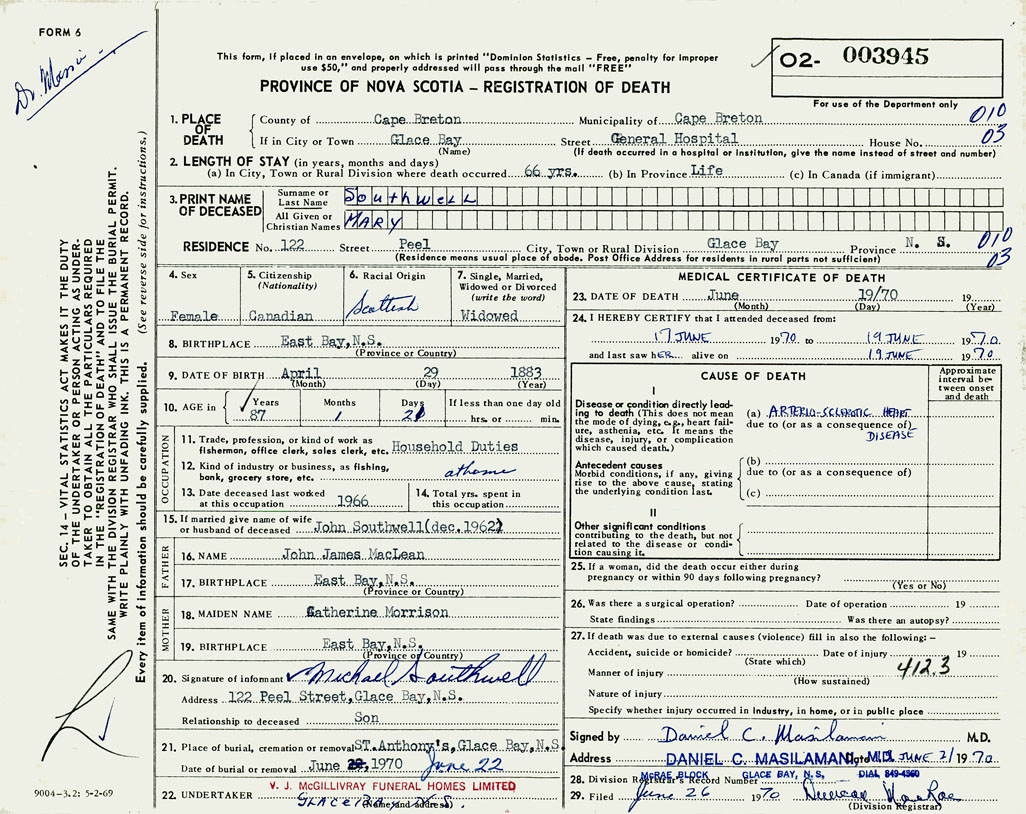 FORM 6
Dr. Masi
This form, if placed in an envelope, on which is printed "Dominion Statistics – Free, penalty for improper
use $50," and properly addressed will pass through the mail "FREE"
PROVINCE OF NOVA SCOTIA – REGISTRATION OF DEATH
O2- 003945
For use of the Department only
1. PLACE OF DEATH
County of Cape Breton Municipality of Cape Breton 010
If in City or Town Glace Bay Street General Hospital House No. 03
(Name) (If death occurred in a hospital or institution, give the name instead of street and number)
2. LENGTH OF STAY (in years, months and days)
(a) In City, Town or Rural Division where death occurred 66 yrs. (b) In Province Life (c) In Canada (if immigrant)
3. PRINT NAME OF DECEASED
Surname or Last Name Southwell
All Given or Christian Names MARY
RESIDENCE No. 122 Street Peel City, Town or Rural Division Glace Bay Province N. S. 010
(Residence means usual place of abode. Post Office Address for residents in rural parts not sufficient) 03
4. Sex
Female
5. Citizenship
(Nationality)
Canadian
6. Racial Origin
Scottish
7. Single, Married,
Widowed or Divorced
(write the word)
Widowed
8. BIRTHPLACE East Bay, N.S.
(Province or Country)
9. DATE OF BIRTH April 29 1883
(Month) (Day) (Year)
10. AGE in
Years Months Days If less than one day old
87 1 21 hrs. or min.
OCCUPATION
11. Trade, profession, or kind of work as
fisherman, office clerk, sales clerk, etc. Household Duties
12. Kind of industry or business, as fishing,
bank, grocery store, etc. at home
13. Date deceased last worked
at this occupation 1966
14. Total yrs. spent in
this occupation
15. If married give name of wife
or husband of deceased John Southwell (dec. 1962)
FATHER
16. NAME John James MacLean
17. BIRTHPLACE East Bay, N.S.
(Province or Country)
MOTHER
18. MAIDEN NAME Catherine Morrison
19. BIRTHPLACE East Bay, N.S.
(Province or Country)
20. Signature of informant Michael Southwell
Address 122 Peel Street, Glace Bay, N.S.
Relationship to deceased Son
21. Place of burial, cremation or removal ST. Anthony's, Glace Bay, N.S
Date of burial or removal June 22, 1970 June 22
22. UNDERTAKER V. J. McGILLIVRAY FUNERAL HOMES LIMITED
GLACE BAY N.S.
(Name and address)
MEDICAL CERTIFICATE OF DEATH
23. DATE OF DEATH June 19/70 19
(Month) (Day) (Year)
24. I HEREBY CERTIFY that I attended deceased from:
17 JUNE 1970 to 19 JUNE 1970
and last saw hER alive on 19 JUNE 1970
CAUSE OF DEATH
Approximate
interval be-
tween onset
and death
I
Disease or condition directly lead-
ing to death (This does not mean
the mode of dying, e.g., heart fail-
ure, asthenia, etc. It means the
disease, injury, or complication
which caused death.)
(a) ARTERIO-SCLEROTIC HEART
due to (or as a consequence of)
DISEASE
Antecedent causes
Morbid conditions, if any, giving
rise to the above cause, stating
the underlying condition last.
(b)
due to (or as a consequence of)
(c)
II
Other significant conditions
contributing to the death, but not
related to the disease or condi-
tion causing it.
25. If a woman, did the death occur either during
pregnancy or within 90 days following pregnancy?
(Yes or No)
26. Was there a surgical operation? Date of operation 19
State findings Was there an autopsy?
27. If death was due to external causes (violence) fill in also the following: –
Accident, suicide or homicide? Date of injury 19
(State which)
Manner of injury 412.3
(How sustained)
Nature of injury
Specify whether injury occurred in Industry, in home, or in public place
Signed by Daniel C. Masilamani M.D.
Address DANIEL C. MASILAMANI, M.D. Date JUNE 21 1970
McRAE BLOCK GLACE BAY, N. S. DIAL 849-4560
28. Division Registrar's Record Number
29. Filed June 26 1970 Duncan MacRae
(Division Registrar)
SEC. 14 – VITAL STATISTICS ACT MAKES IT THE DUTY
OF THE UNDERTAKER OR PERSON ACTING AS UNDER-
TAKER TO OBTAIN ALL THE PARTICULARS REQUIRED
IN THE "REGISTRATION OF DEATH" AND TO FILE THE
SAME WITH THE DIVISION REGISTRAR WHO SHALL ISSUE THE BURIAL PERMIT.
WRITE PLAINLY WITH UNFADING INK. THIS IS A PERMANENT RECORD.
Every item of information should be carefully supplied. (See reverse side for instructions.)
9004-3.2: 5-2-69